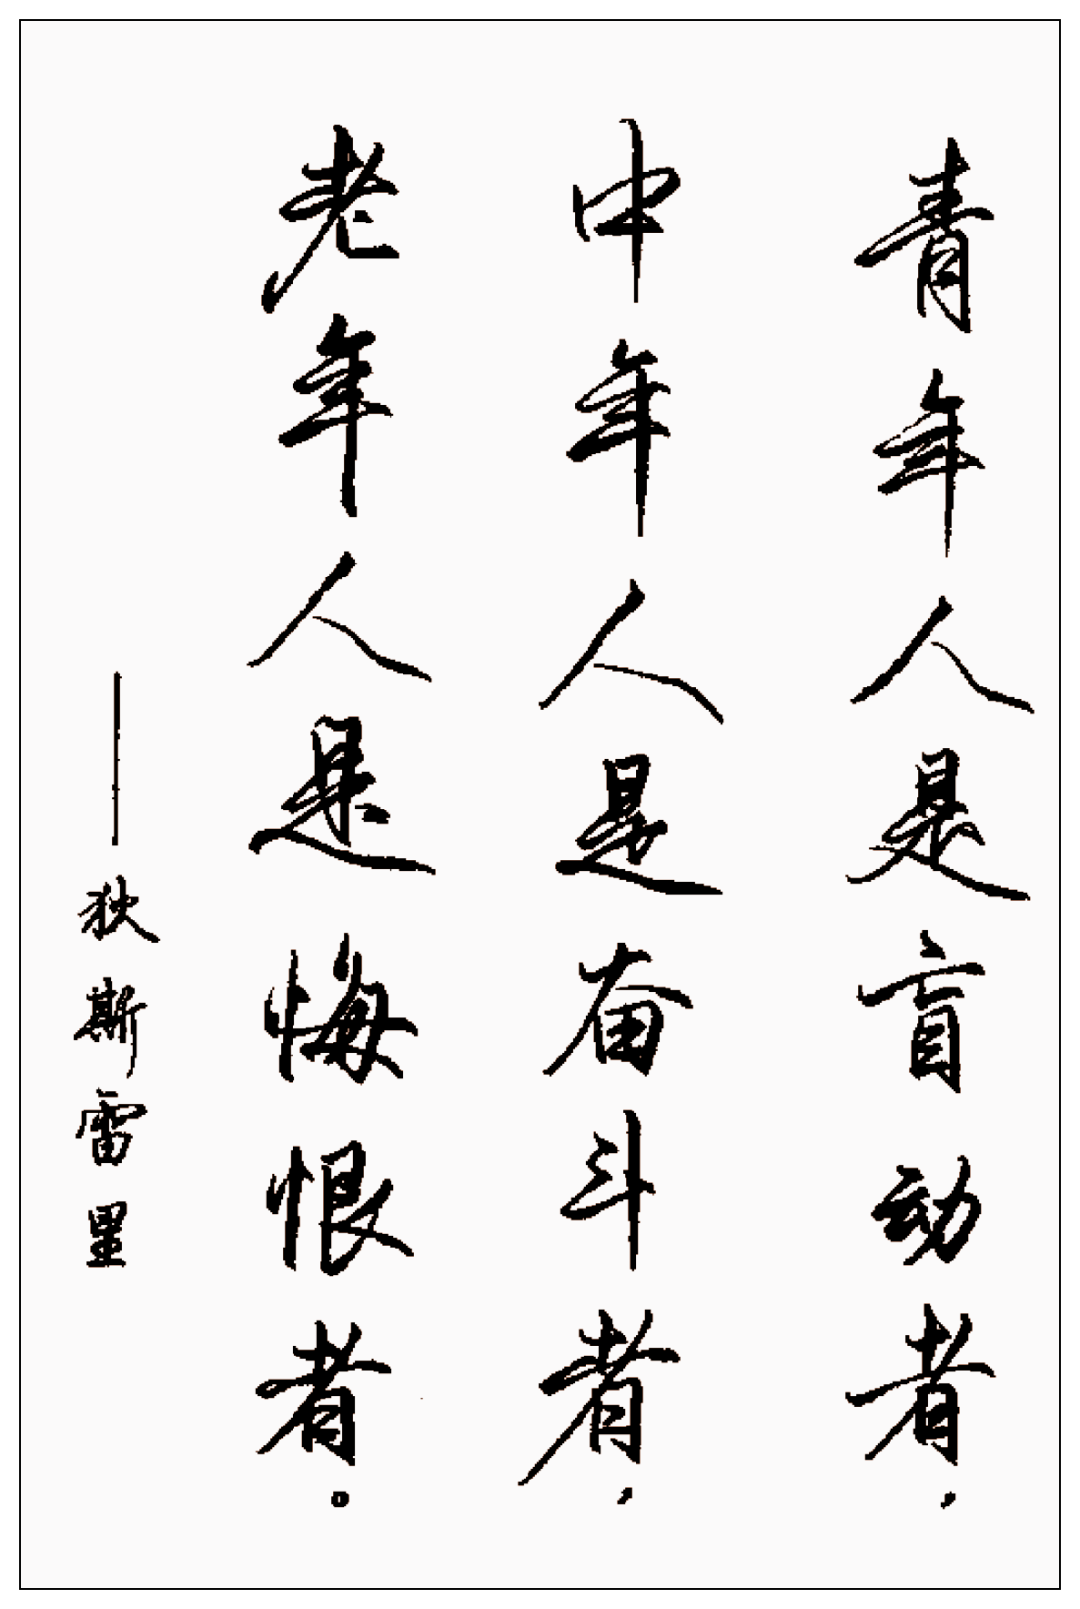 青年人是盲动者，
中年人是奋斗者，
老年人是悔恨者。
——狄斯雷里